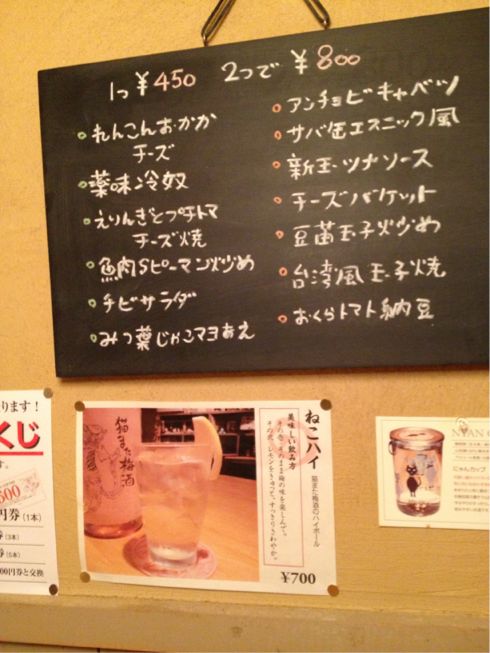 1つ ¥450 2つで ¥800
れんこんおかか
チーズ
薬味冷奴
えりんぎとプチトマ
チーズ焼
魚肉Sピーマン炒め
チビサラダ
みつ葉じゃこマヨあえ
アンチョビキャベツ
サバ缶エスニック風
新玉・ツナソース
チーズバケット
豆苗玉子炒め
台湾風玉子焼
おくらトマト納豆
ります！
くじ
す。
500
円券（1本）
券（3本）
券（5本）
00円券と交換
猫また梅酒
ねこハイ
猫また梅酒のハイボール
美味しい飲み方
その壱、そのまま梅の味を楽しんで。
その弐、レモンをきゅっと、すっきりさわやか。
¥700
NYAN C
にゃんカップ